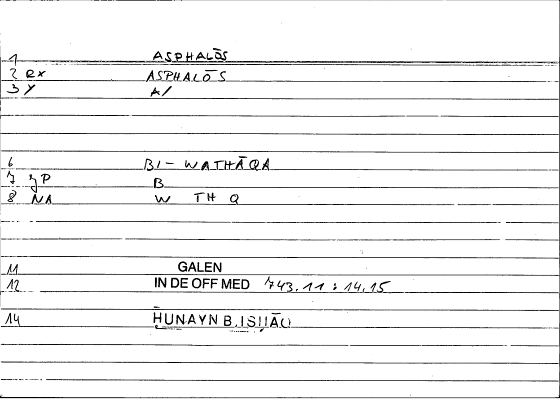 1 ASPHALŌS
2 RX ASPHALŌS
3 Y A/
6 BI- WATHĀQA
7 JP B
8 NA W TH Q
11 GALEN
12 IN DE OFF MED 743.11 : 14.15
14 ḤUNAYN B.